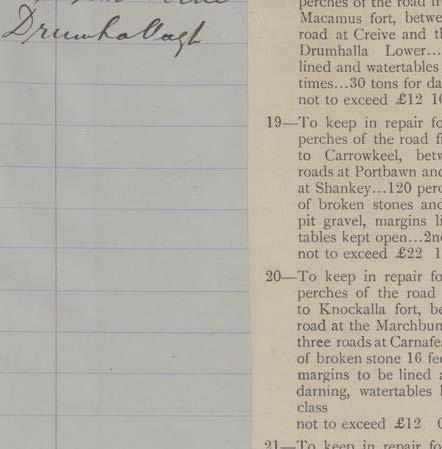 Drumhallagh
perches of the road fr
Macamus fort, betwe
road at Creive and th
Drumhalla Lower...
lined and watertables
times...30 tons for da
not to exceed £12 10
19—To keep in repair fo
perches of the road fr
to Carrowkeel, betw
roads at Portbawn and
at Shankey...120 perc
of broken stones and
pit gravel, margins li
tables kept open...2nd
not to exceed £22 1
20—To keep in repair for
perches of the road
to Knockalla fort, be
road at the Marchbun
three roads at Carnafe
of broken stone 16 fee
margins to be lined a
darning, watertables
class
not to exceed £12 0
21—To keep in repair fo